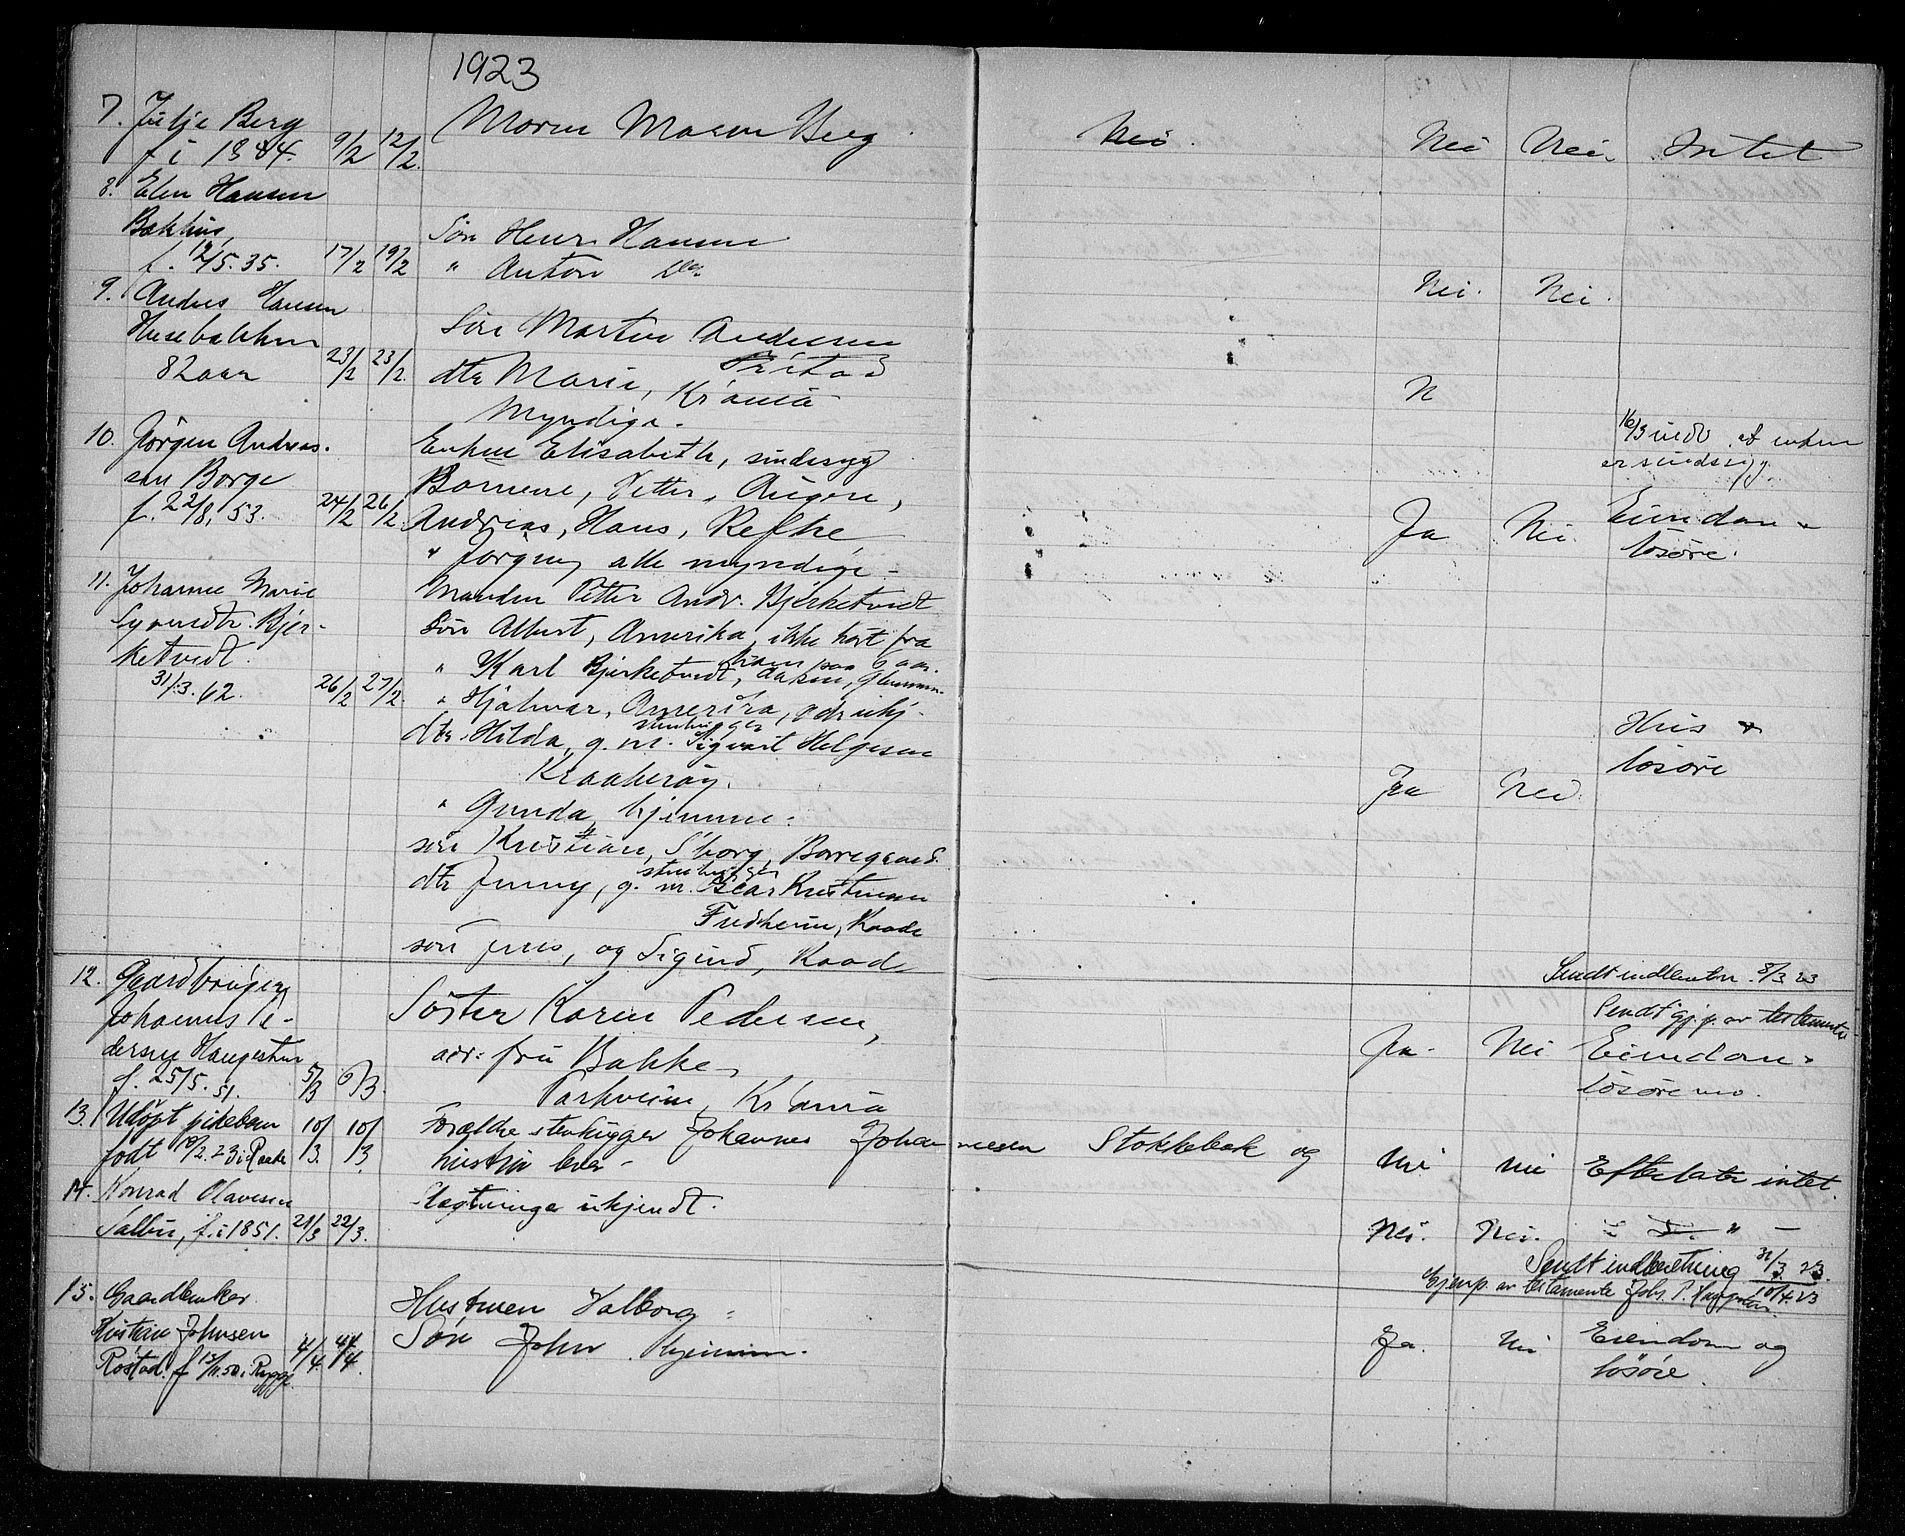 1923
7. Julie Berg
f i 1844. 9/2 12/2. Moren Maren Berg Nei. Nei Nei. Intet
8. Elen Hansen
Bakhus,
f. 12/5.35. 17/2 19/2
Søn Henr. Hansen
" Anton do. Nei. Nei.
9. Andres Hansen
Husebakken
82 aar 23/2 23/2.
Søn Martin Andersen
dtr Marie, Kr.ania N
Myndige.
10. Jørgen Andreas-
sen Borge
f. 22/8. 53. 24/2 26/2.
Enken Elisabeth, sindssyg
Børnene, Petter,
Andreas, Hans,
" Jørgen, alle myndige - Ja Nei. Eiendom
løsøre.
16/3 af enken
er sindssyg.
11. Johanne Marie
Syversdtr. Bjer-
ketvedt.
31/3.62. 26/2 27/2.
Manden Petter Andr. Bjerketvedt
Søn Albert, Amerika, ikke hørt fra
ham paa 6 aar.
" Karl Bjerketvedt, Aasen, Glemmen
" Hjalmar, Amerika, adr. ukj.
stenhugger
dtr. Hilda, g. m. Sigvart Helgesen
Kraakerøy.
" Gunda, hjemme.
søn Kristian, S'borg, Borregaard.
stenhugger
dtr Jenny, g. m. Oscar Kristiansen
Fredheim, Raade
søn Jens, og Sigurd, Raade
Ja Nei. Hus
løsøre
Sendt indberetn. 8/3 23
12. Gaardbruger
Johannes Pe-
dersen Haugesten
f. 25/5. 51. 5/3 6/3.
Søster Karen Pedersen,
adr: fru Bakke,
Parkveien, Kr.ania
Sendt gj.p. av testamente
Ja. Nei Eiendom
løsøre
13. Udøpt pikebarn
født 19/2.23 i Raade 10/3. 10/3.
Forældre stenhugger Johannes Johannessen Stokkebæk og
hustru Nei nei Efterlater intet.
14. Konrad Olavesen
f. i 1851. 21/3 22/3.
Slegtninger ukjendt. Nei. Nei. "
Sendt indberetning 31/3. 23.
Gjenp. av testamente Johs. P. Haugsten 10/4.23
15. Gaardbruker
Kristian Johnsen
Røstad. f 15/11.50 i Rygge. 4/4. 4/4.
Hustruen Valborg
Søn John hjemme.
Ja. nei Eiendom og
løsøre.